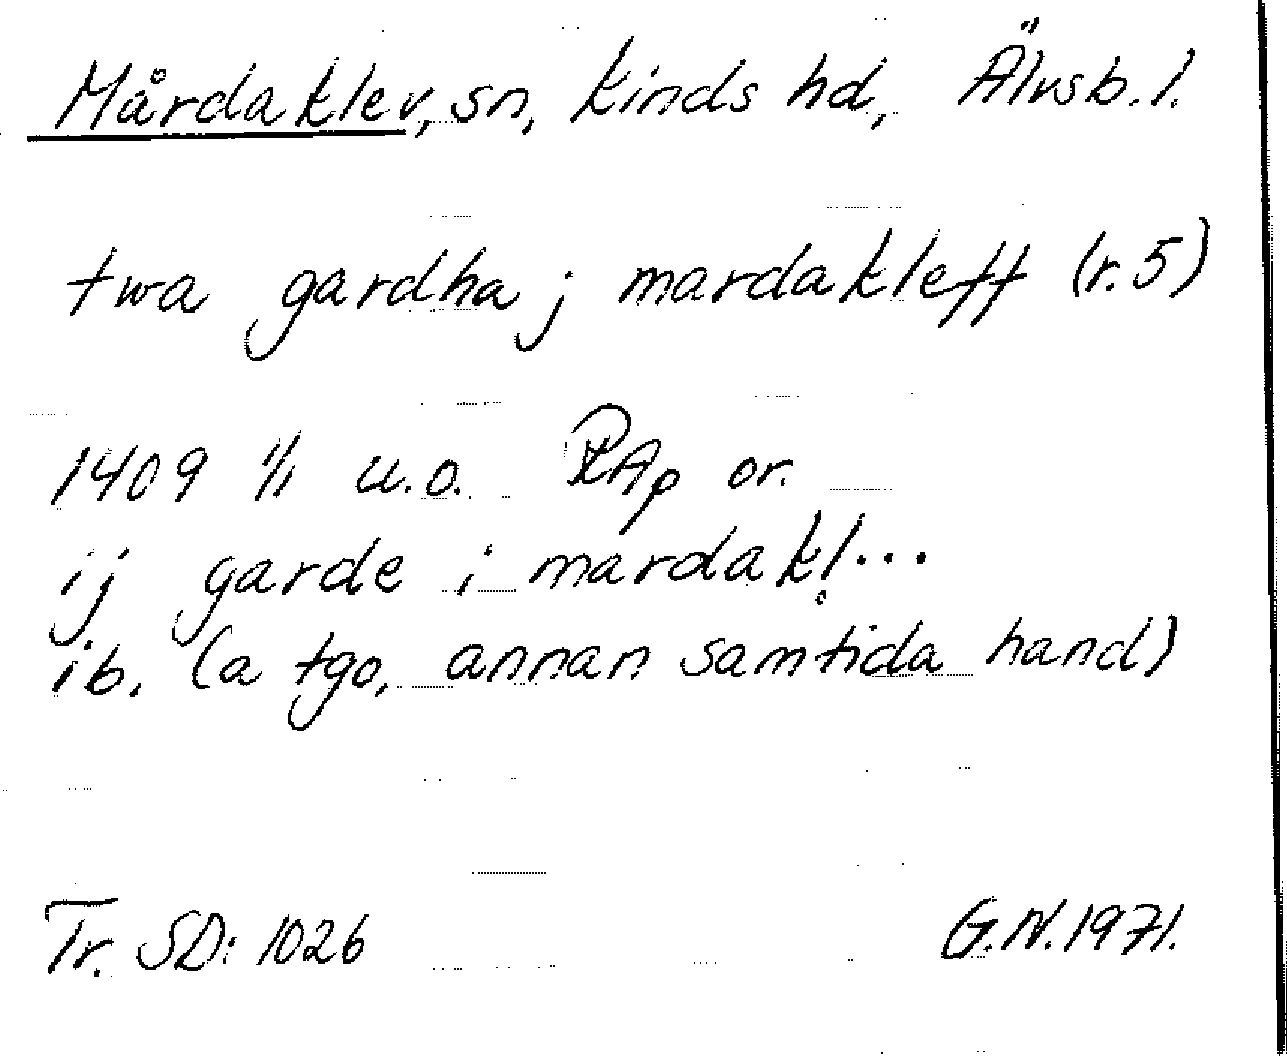 Mårdaklev, sn, Kinds hd, Älvsb. l.
twa gardha j mardakleff (r. 5)
1409 1/1 u.o. RAp or.
ij garde i mardakl̥...
ib. (a tgo, annan samtida hand)
Tr. SD: 1026 G.N. 1971.